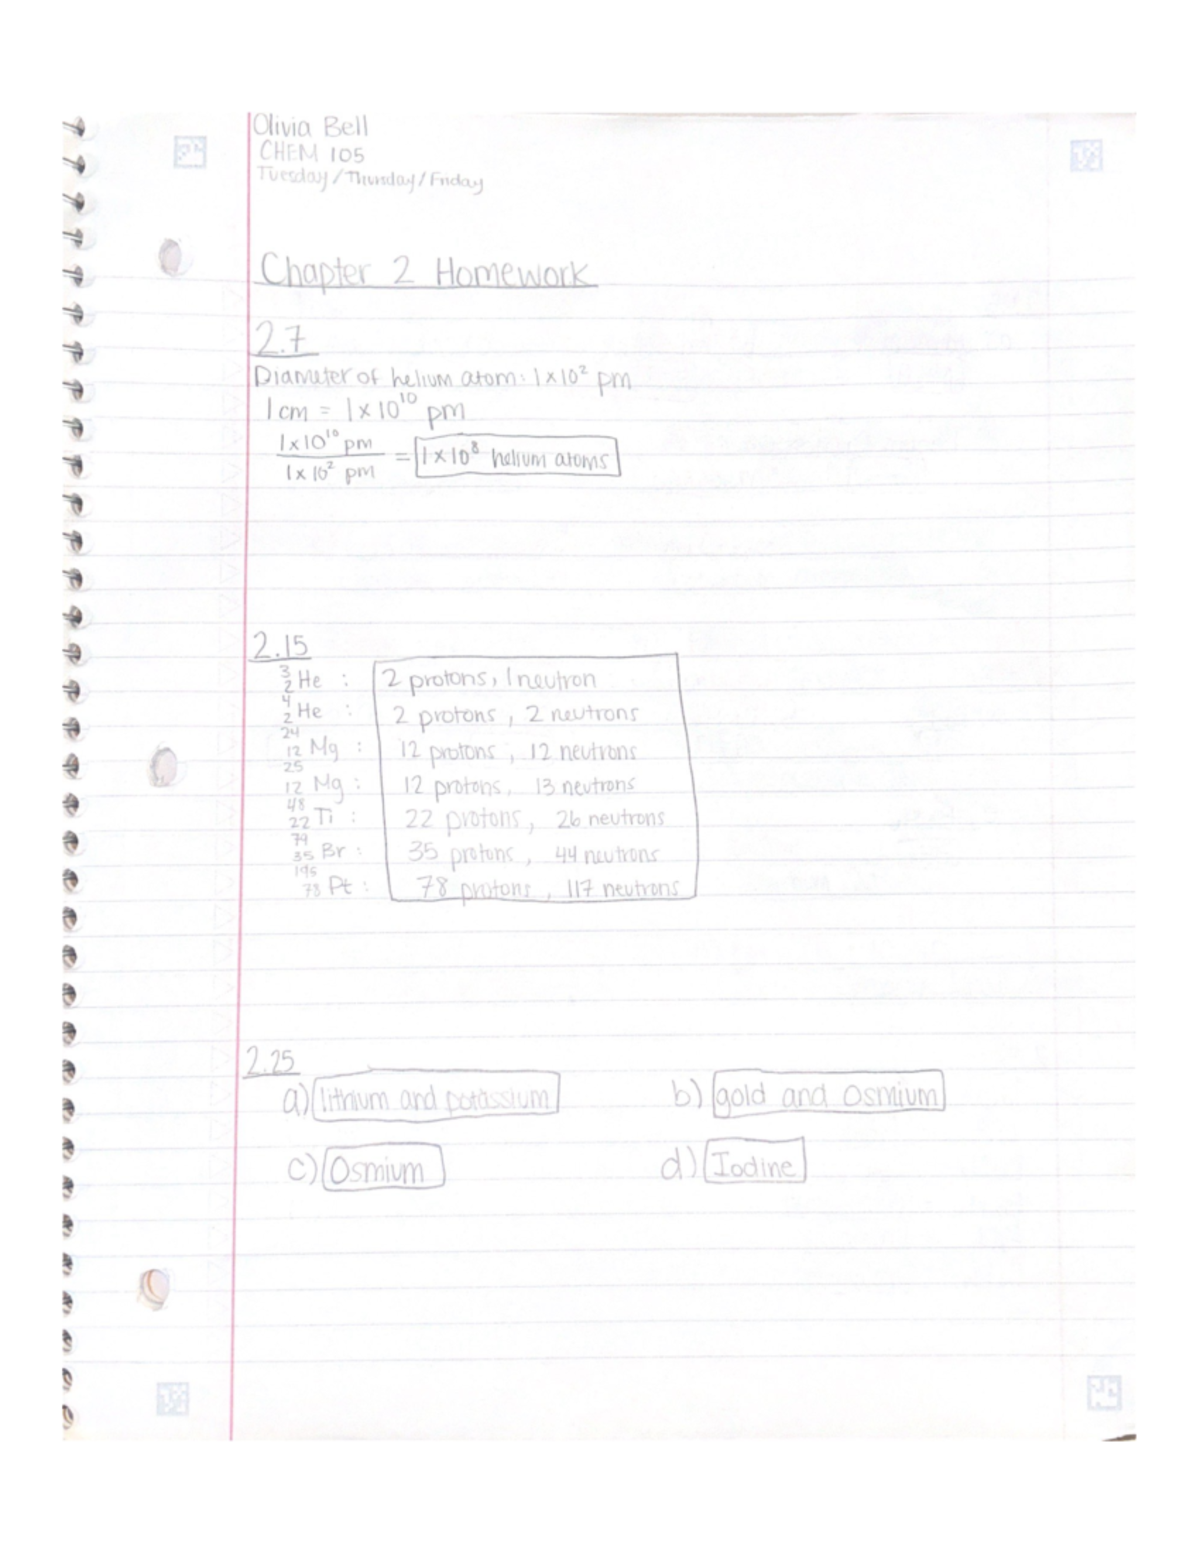 Olivia Bell
CHEM 105
Tuesday/Thursday/Friday
Chapter 2 Homework
2.7
Diameter of helium atom: 1×10² pm
1 cm = 1×10¹⁰ pm
1×10¹⁰ pm
1×10² pm
= 1×10⁸ helium atoms
2.15
³₂He : 2 protons, 1 neutron
⁴₂He : 2 protons, 2 neutrons
²⁴₁₂Mg : 12 protons, 12 neutrons
²⁵₁₂Mg : 12 protons, 13 neutrons
⁴⁸₂₂Ti : 22 protons, 26 neutrons
⁷⁹₃₅Br : 35 protons, 44 neutrons
¹⁹⁵₇₈Pt : 78 protons, 117 neutrons
2.25
a) lithium and potassium b) gold and osmium
c) Osmium d) Iodine